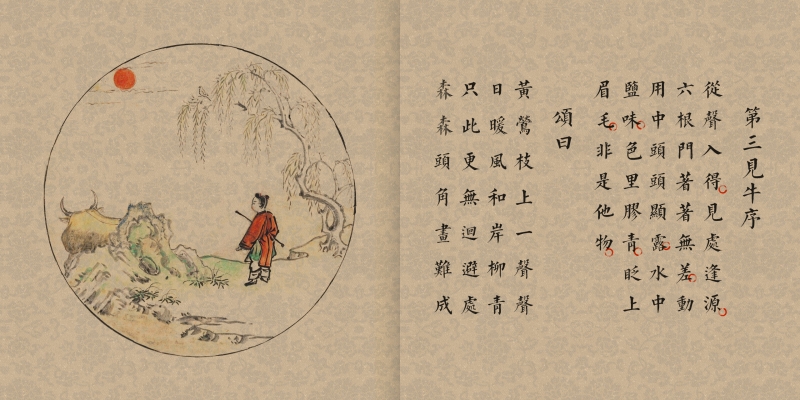 第三見牛序
從聲入得見處逢源
六根門著著無差動
用中頭頭顯露水中
鹽味色里膠青眨上
眉毛非是他物
頌曰
黃鶯枝上一聲聲
日暖風和岸柳青
只此更無迴避處
森森頭角畫難成